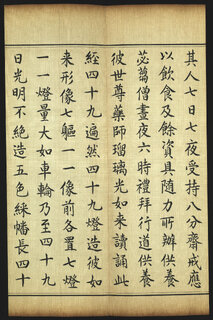 其人七日七夜受持八分齋戒應
以飲食及餘資具隨力所辦供養
苾蒭僧晝夜六時禮拜行道供養
彼世尊藥師瑠璃光如來讀誦此
經四十九遍然四十九燈造彼如
來形像七軀一一像前各置七燈
一一燈量大如車輪乃至四十九
日光明不絕造五色綵幡長四十